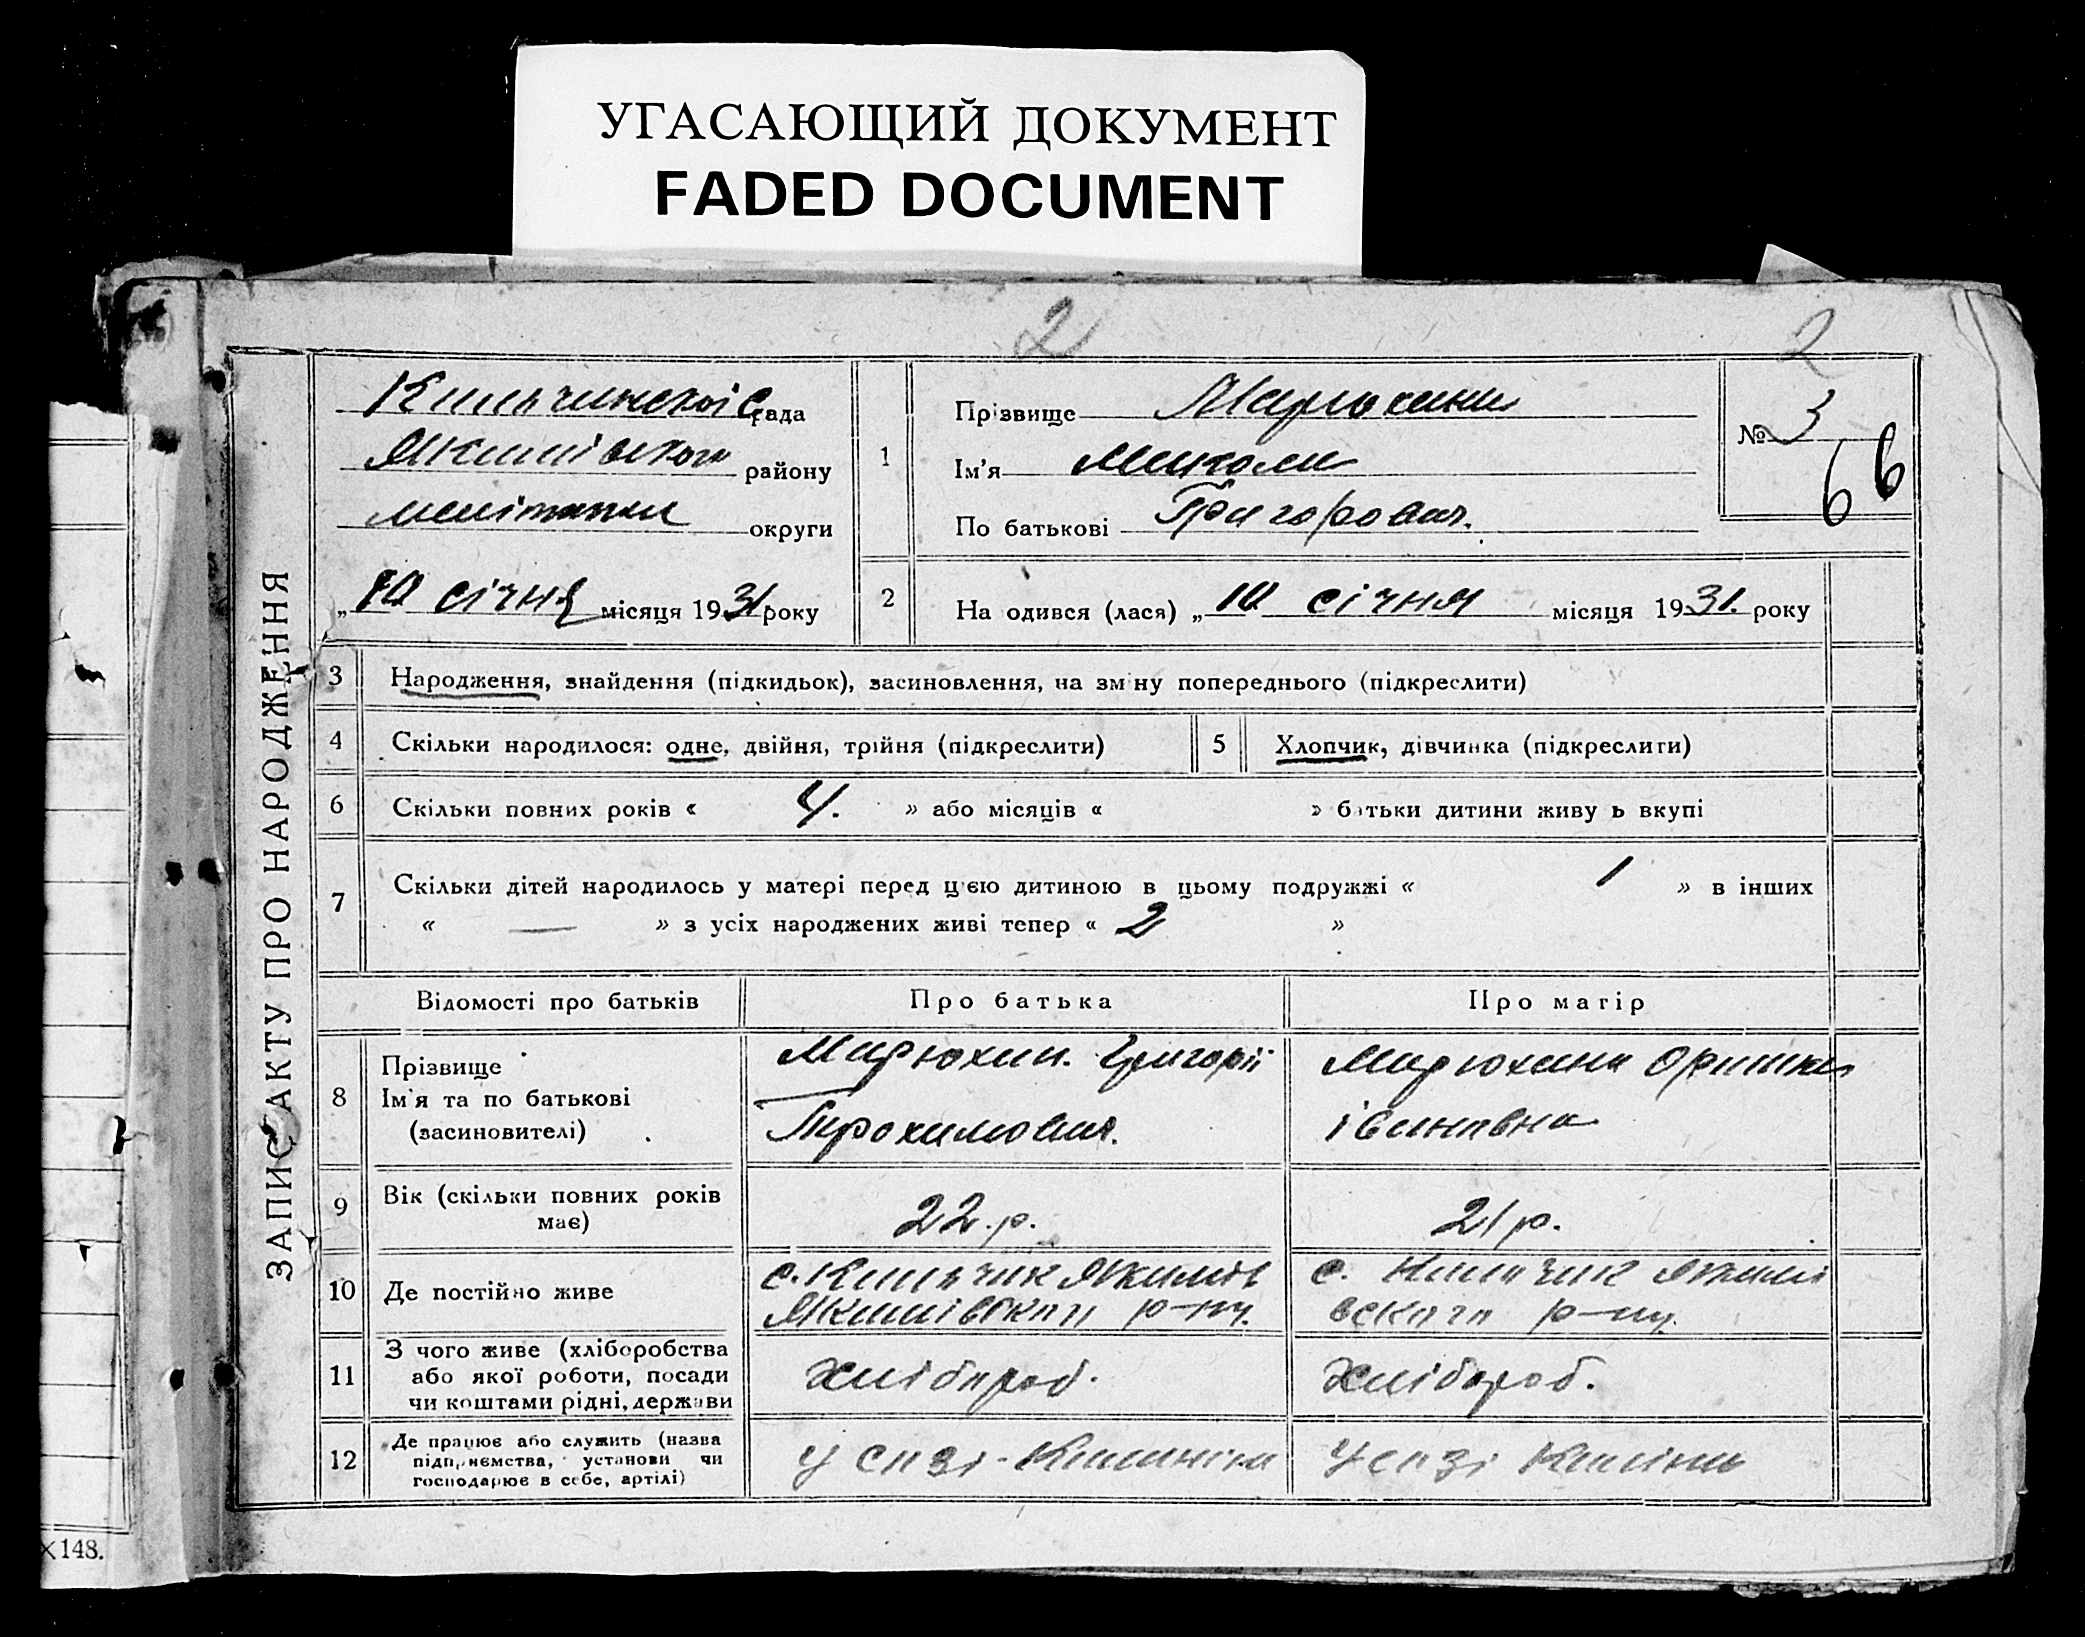 УГАСАЮЩИЙ ДОКУМЕНТ
FADED DOCUMENT
2
2
ЗАПИС АКТУ ПРО НАРОДЖЕННЯ
рада
району
округи
„10 січня місяця 1931 року
1
Прізвище
Ім'я Миколи
По батькові Григорович.
№ 3
66
2
На одився (лася) „10 січня місяця 1931. року
3 Народження, знайдення (підкидьок), засиновлення, на зміну попереднього (підкреслити)
4 Скільки народилося: одне, двійня, трійня (підкреслити)
5 Хлопчик, дівчинка (підкреслити)
6 Скільки повних років « 4. » або місяців « » батьки дитини живу ь вкупі
7 Скільки дітей народилось у матері перед цією дитиною в цьому подружжі « 1 » в інших
« — » з усіх народжених живі тепер « 2 »
Відомості про батьків
Про батька
Про матір
8
Прізвище
Ім'я та по батькові
(засиновителі)
Марюхин. Григорій
Трохимович.
Марюхина Оришка
Івановна
9
Вік (скільки повних років
має)
22.р.
21 р.
10 Де постійно живе
с.
р-ну.
с.
р-ну.
11
З чого живе (хліборобства
або якої роботи, посади
чи коштами рідні, держави
хлібороб.
хлібороб.
12
Де працює або служить (назва
підприємства, установи чи
господарює в себе, артілі)
у созі
у созі
148.